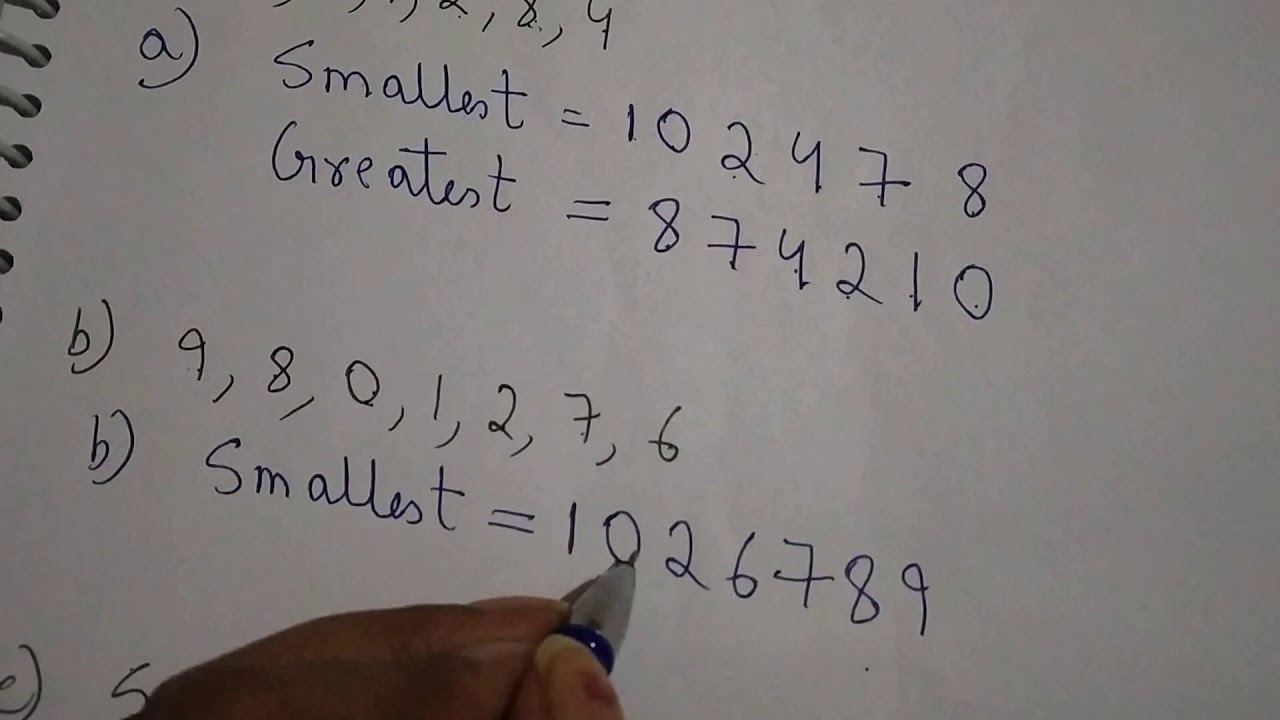 2, 8, 4
a) Smallest = 102478
Greatest = 874210
b) 9, 8, 0, 1, 2, 7, 6
b) Smallest = 1026789
c) 5